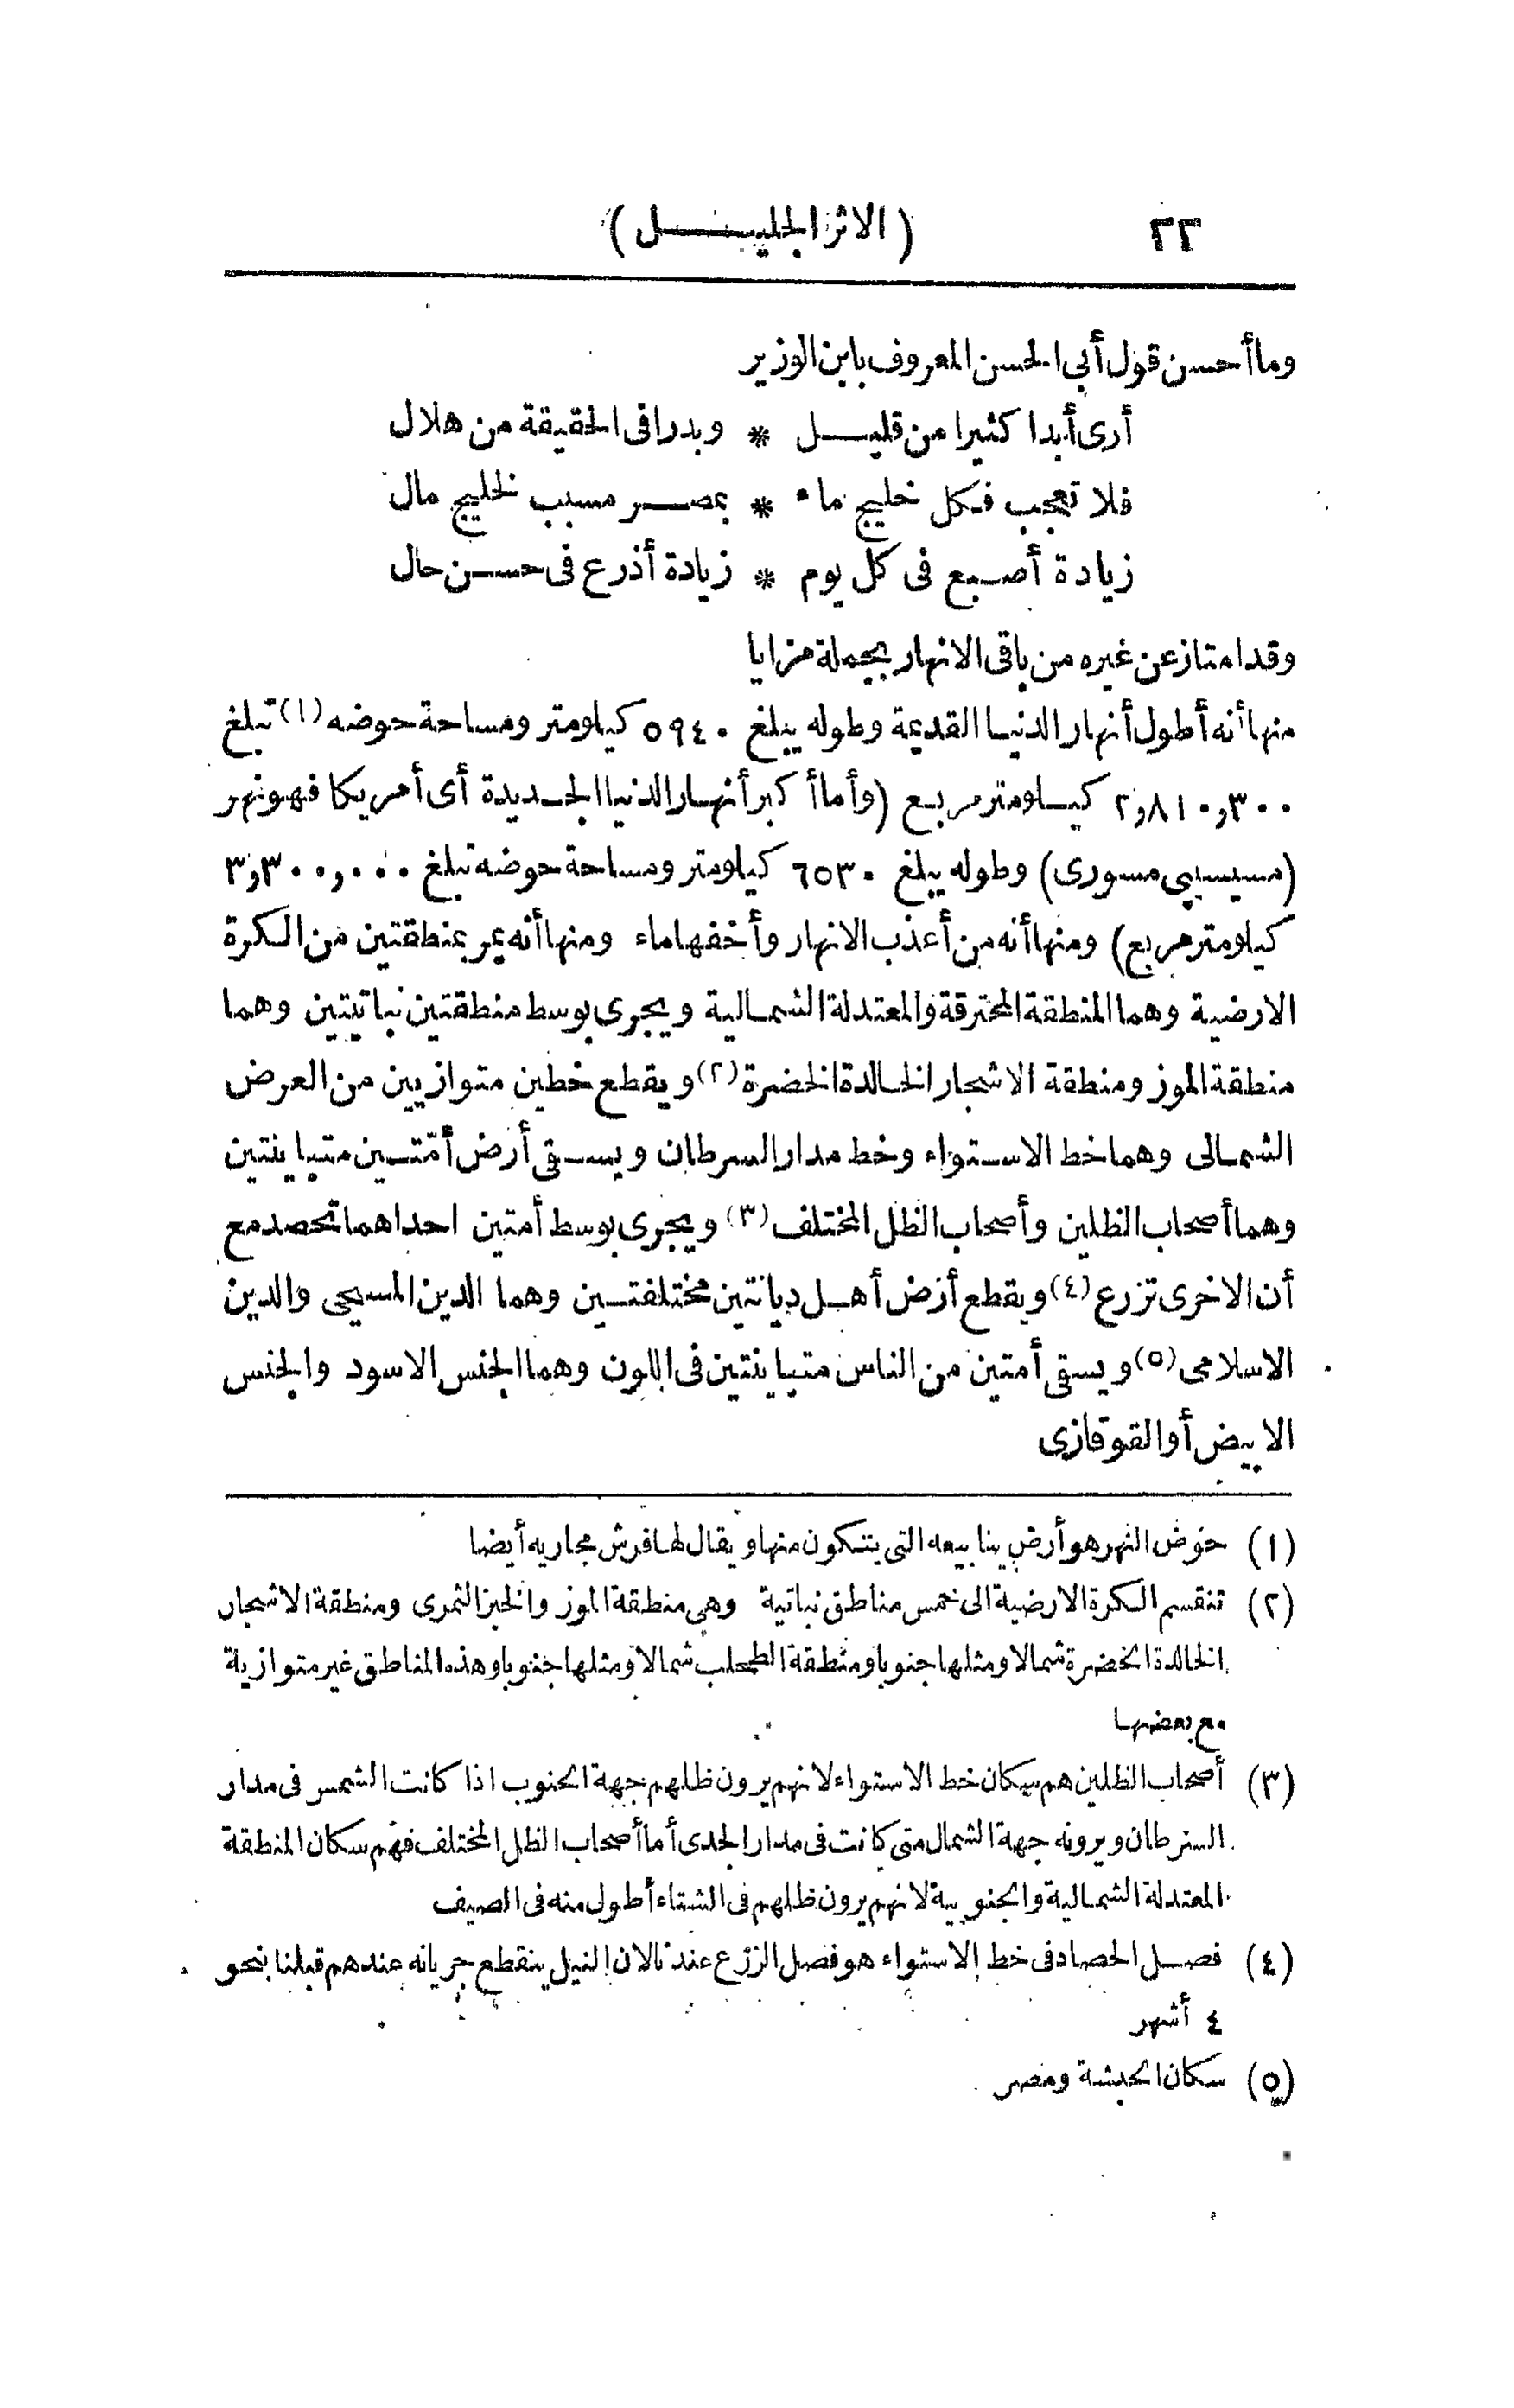 ٢٢ (الاثر الجليــــل)
وما أحسن قول أبى الحسن المعروف بابن الوزير
أرى أبدا كثيرا من قليــل * وبدرا فى الحقيقة من هلال
فلا تعجب فكل خليج ماء * بمصــر مسبب لخليج مال
زيادة أصبع فى كل يوم * زيادة أذرع فى حســن حال
وقد امتاز عن غيره من باقى الانهار بجملة مزايا
منها أنه أطول أنهار الدنيا القديمة وطوله يبلغ ٥٩٤٠ كيلومتر ومساحة حوضه (١) تبلغ
٢,٨١٠,٣٠٠ كيلومتر مربع (وأما أكبر أنهار الدنيا الجديدة أى أمريكا فهو نهر
(مسيسيبى مسورى) وطوله يبلغ ٦٥٣٠ كيلومتر ومساحة حوضه تبلغ ٣,٣٠٠,٠٠٠
كيلومتر مربع) ومنها أنه من أعذب الانهار وأخفها ماء ومنها أنه يمر بمنطقتين من الكرة
الارضية وهما المنطقة المحترقة والمعتدلة الشمالية ويجرى بوسط منطقتين نباتيتين وهما
منطقة الموز ومنطقة الاشجار الخالدة الخضرة (٢) ويقطع خطين متوازيين من العرض
الشمالى وهما خط الاستواء وخط مدار السرطان ويسقى أرض أمّتين متباينتين
وهما أصحاب الظلين وأصحاب الظل المختلف (٣) ويجرى بوسط أمتين احداهما تحصد مع
أن الاخرى تزرع (٤) ويقطع أرض أهل ديانتين مختلفتين وهما الدين المسيحى والدين
الاسلامى (٥) ويسقى أمتين من الناس متباينتين فى اللون وهما الجنس الاسود والجنس
الابيض أو القوقازى
(١) حوض النهر هو أرض ينابيعه التى يتكون منها ويقال لها فرش مجاريه أيضا
(٢) تنقسم الكرة الارضية الى خمس مناطق نباتية وهى منطقة الموز والخبز الثمرى ومنطقة الاشجار
الخالدة الخضرة شمالا ومثلها جنوبا ومنطقة الطحلب شمالا ومثلها جنوبا وهذه المناطق غير متوازية
مع بعضها
(٣) أصحاب الظلين هم سكان خط الاستواء لانهم يرون ظلهم جهة الجنوب اذا كانت الشمس فى مدار
السرطان ويرونه جهة الشمال متى كانت فى مدار الجدى أما أصحاب الظل المختلف فهم سكان المنطقة
المعتدلة الشمالية والجنوبية لانهم يرون ظلهم فى الشتاء أطول منه فى الصيف
(٤) فصل الحصاد فى خط الاستواء هو فصل الزرع عندنا لان النيل ينقطع جريانه عندهم قبلنا بنحو
٤ أشهر
(٥) سكان الحبشة ومصر